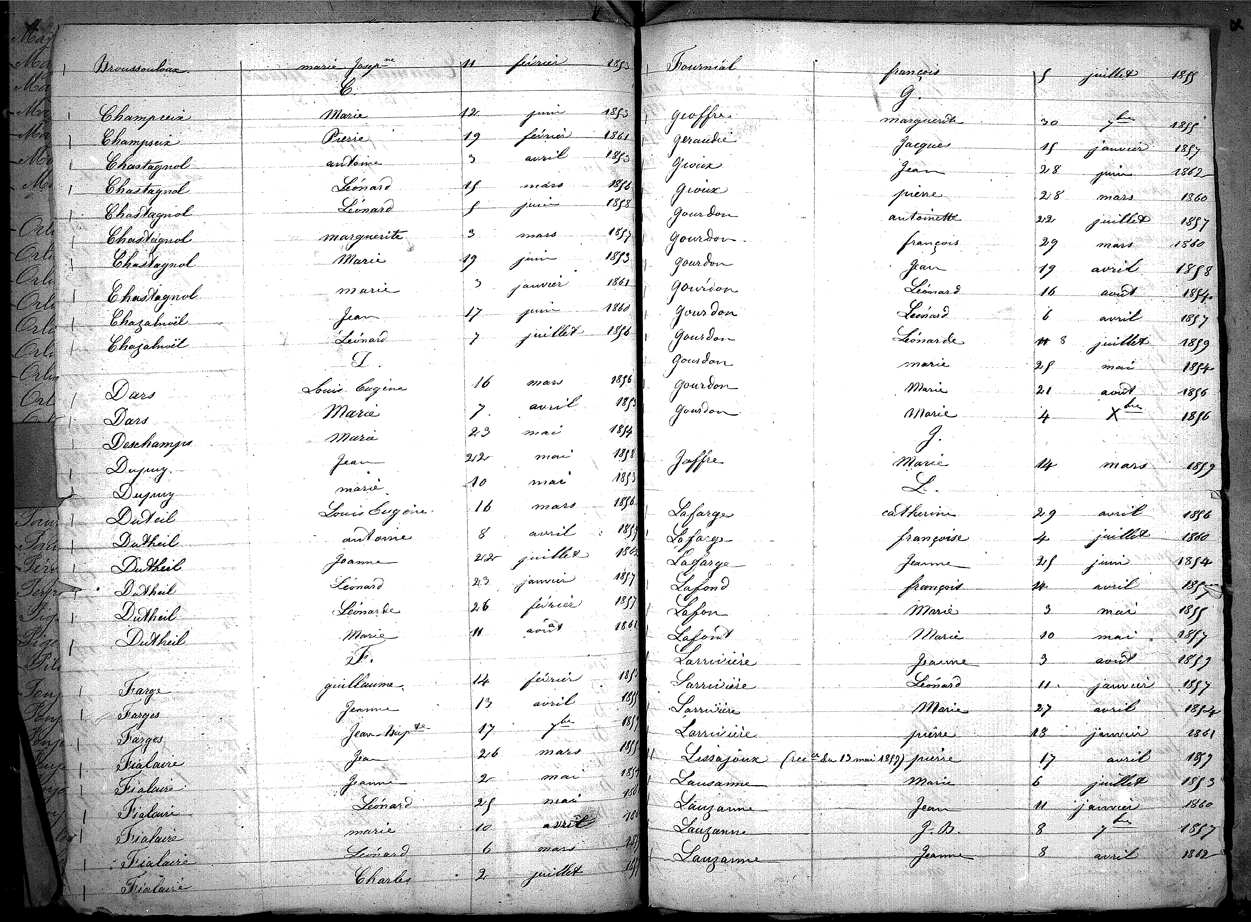 Broussouloux marie Josp.ne 11 février 1853
C.
Champseix Marie 12 juin 1853
Champseix Pierre 19 février 1861
Chastagnol antoine 3 avril 1853
Chastagnol Léonard 15 mars 1856
Chastagnol Léonard 5 juin 1858
Chastagnol marguerite 3 mars 1857
Chastagnol Marie 19 juin 1853
Chastagnol marie 3 janvier 1861
Chazalnoël Jean 17 juin 1860
Chazalnoël Léonard 7 juillet 1856
D.
Dars Louis Eugène 16 mars 1856
Dars Marie 7 avril 1853
Deschamps Marie 23 mai 1854
Dupuy Jean 22 mai 1858
Dupuy marie 10 mai 1853
Duteil Louis Eugène 16 mars 1856
Dutheil antoine 8 avril 1859
Dutheil Jeanne 22 juillet
Dutheil Léonard 23 janvier 1857
Dutheil Léonarde 26 février 1857
Dutheil Marie 11 août 1861
F.
Farge guillaume 14 février
Farges Jeanne 13 avril
Farges Jean-Bapte 17 7bre
Fialaire Jean 26 mars
Fialaire Jeanne 2 mai
Fialaire Léonard 25 mai
Fialaire marie 10 avril
Fialaire Léonard 6 mars
Fialaire Charles 2 juillet
Fournial françois 5 juillet 1855
G.
Geoffre marguerite 30 7bre 1855
Geraudie Jacques 15 janvier 1857
Gioux Jean 28 juin 1862
Gioux pierre 28 mars 1860
Gourdon antoinette 22 juillet 1857
Gourdon françois 29 mars 1860
Gourdon Jean 19 avril 1858
Gourdon Léonard 16 août 1854
Gourdon Léonard 6 avril 1857
Gourdon Léonarde 8 juillet 1859
Gourdon marie 25 mai 1854
Gourdon Marie 21 août 1856
Gourdon Marie 4 Xbre 1856
J.
Joffre Marie 14 mars 1859
L.
Lafarge catherine 29 avril 1856
Lafarge françoise 4 juillet 1860
Lafarge Jeanne 25 juin 1854
Lafond françois 11 avril 1857
Lafon Marie 3 mai 1855
Lafont Marie 10 mai 1857
Larrivière Jeanne 3 août 1859
Larrivière Léonard 11 janvier 1857
Larrivière Marie 27 avril 1854
Larrivière pierre 18 janvier 1861
Lissajoux (rec.on du 13 mai 1859) pierre 17 avril 1859
Lausanne Marie 6 juillet 1853
Lauzanne Jean 11 janvier 1860
Lauzanne J.-B. 8 7bre 1857
Lauzanne Jeanne 8 avril 1862